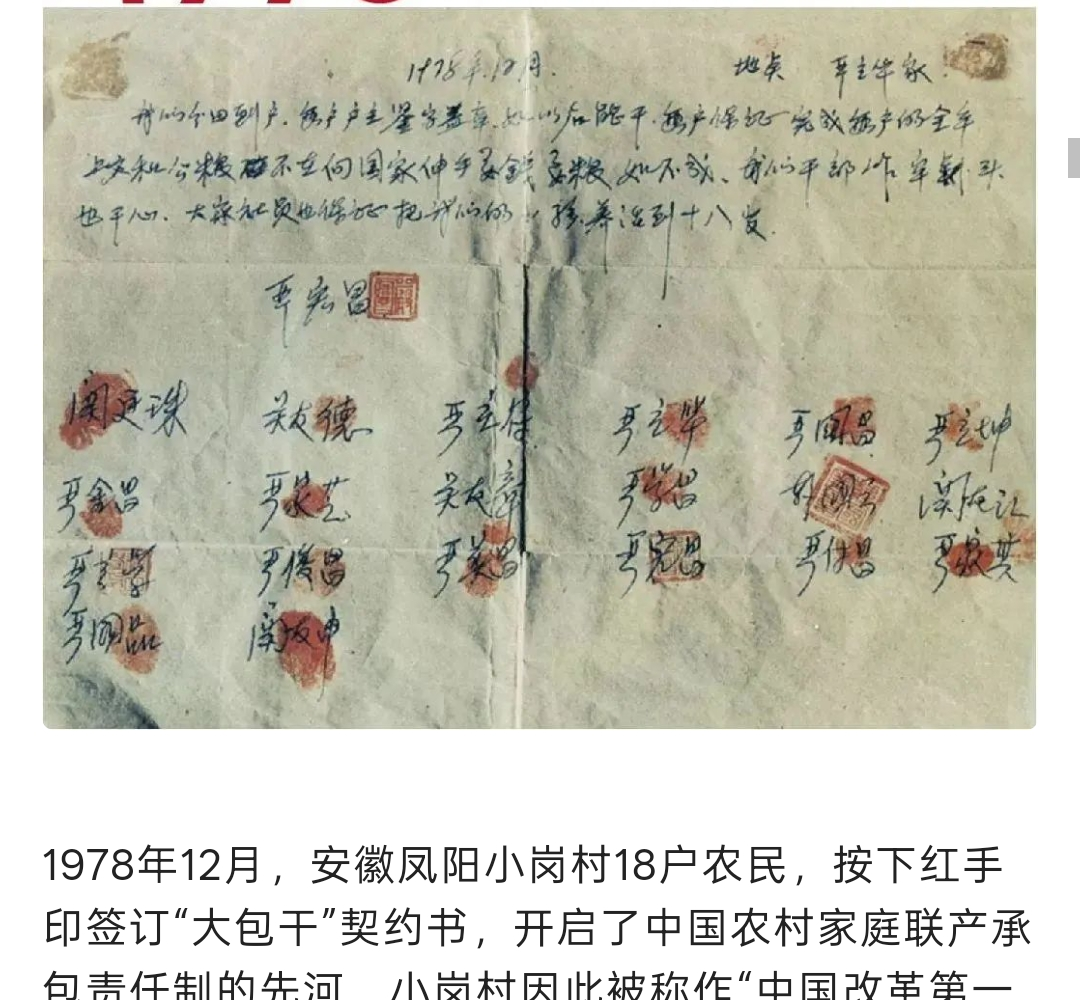 1978年12月. 地点 严立华家
我们分田到户.每户户主签字盖章.如以后能干.每户保证完成每户的全年
上交和公粮不在向国家伸手要钱要粮如不成.我们干部作牢头
也干心.大家社员也保证把我们的小孩养活到十八岁.
严宏昌
关廷珠 关友德 严立符 严立华 严国昌 严立坤
严金昌 严家芝 关友章 严学昌 韩国云 关友江
严立学 严俊昌 严美昌 严宏昌 严付昌 严家其
严国品 关友申
1978年12月，安徽凤阳小岗村18户农民，按下红手
印签订“大包干”契约书，开启了中国农村家庭联产承
包责任制的先河，小岗村因此被称作“中国改革第一